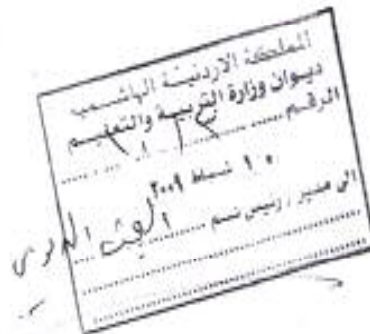 المملكة الاردنية الهاشمية
ديوان وزارة التربية والتعليم
الرقم
١٠ شباط ٢٠٠٩
الى مدير / رئيس قسم البحث التربوي